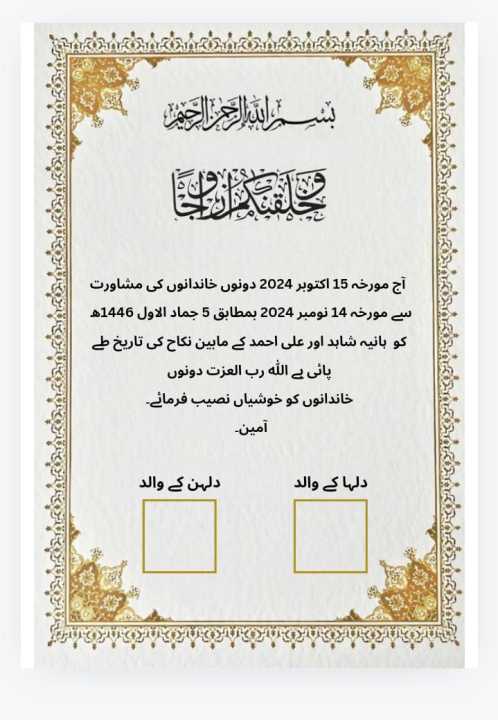 بسم الله الرحمن الرحيم
وَخَلَقْنَكُمْ أَزْوَاجًا
آج مورخہ 15 اکتوبر 2024 دونوں خاندانوں کی مشاورت
سے مورخہ 14 نومبر 2024 بمطابق 5 جماد الاول 1446ھ
کو ہانیہ شاہد اور علی احمد کے مابین نکاح کی تاریخ طے
پائی ہے اللہ رب العزت دونوں
خاندانوں کو خوشیاں نصیب فرمائے۔
آمین۔
دلہا کے والد
دلہن کے والد